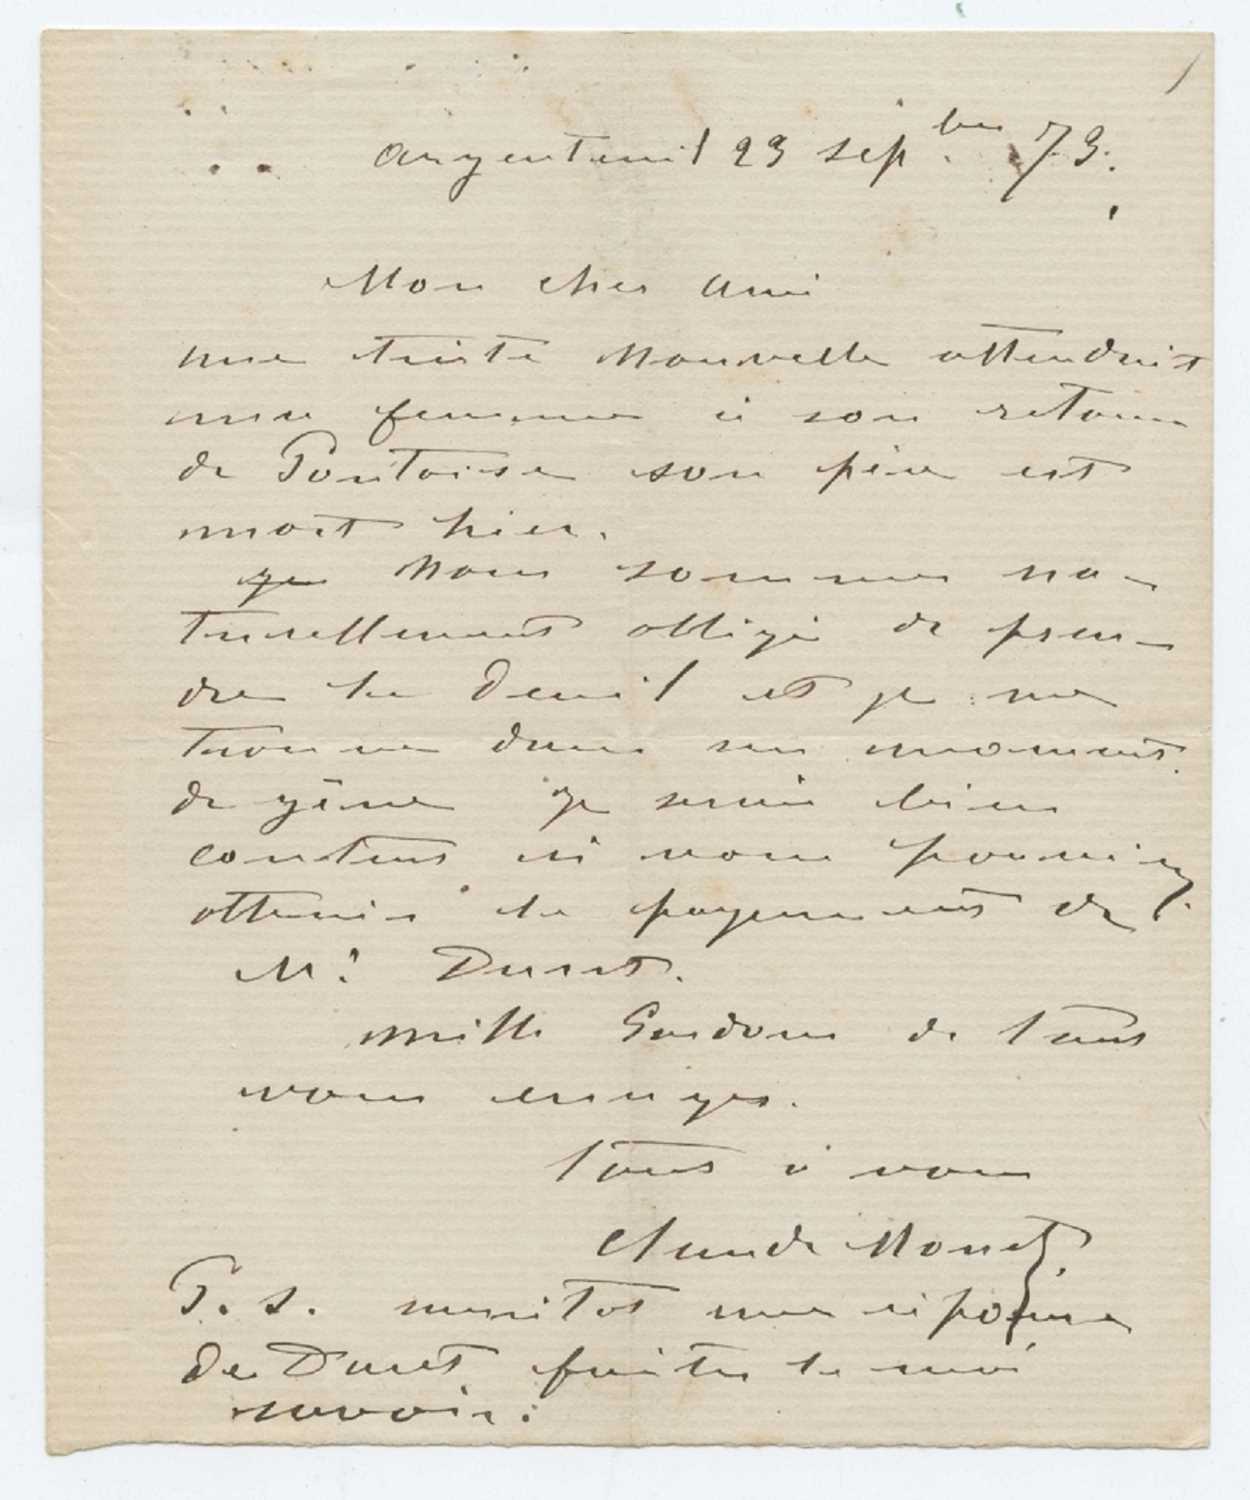 argenteuil 23 sepbre 73.
Mon cher ami
une triste Nouvelle attendait
ma femme à son retour
de Pontoise son père est
mort hier.
je Nous sommes na-
turellement obligé de pren-
dre le deuil et je me
trouve dans un moment
de gêne je serais bien
content si vous pouviez
obtenir le payement de
Mr Duret.
mille Pardons de tant
vous ennuyer.
tout à vous
Claude Monet
P. S. aussitot une réponse
de Duret faites le moi
savoir.